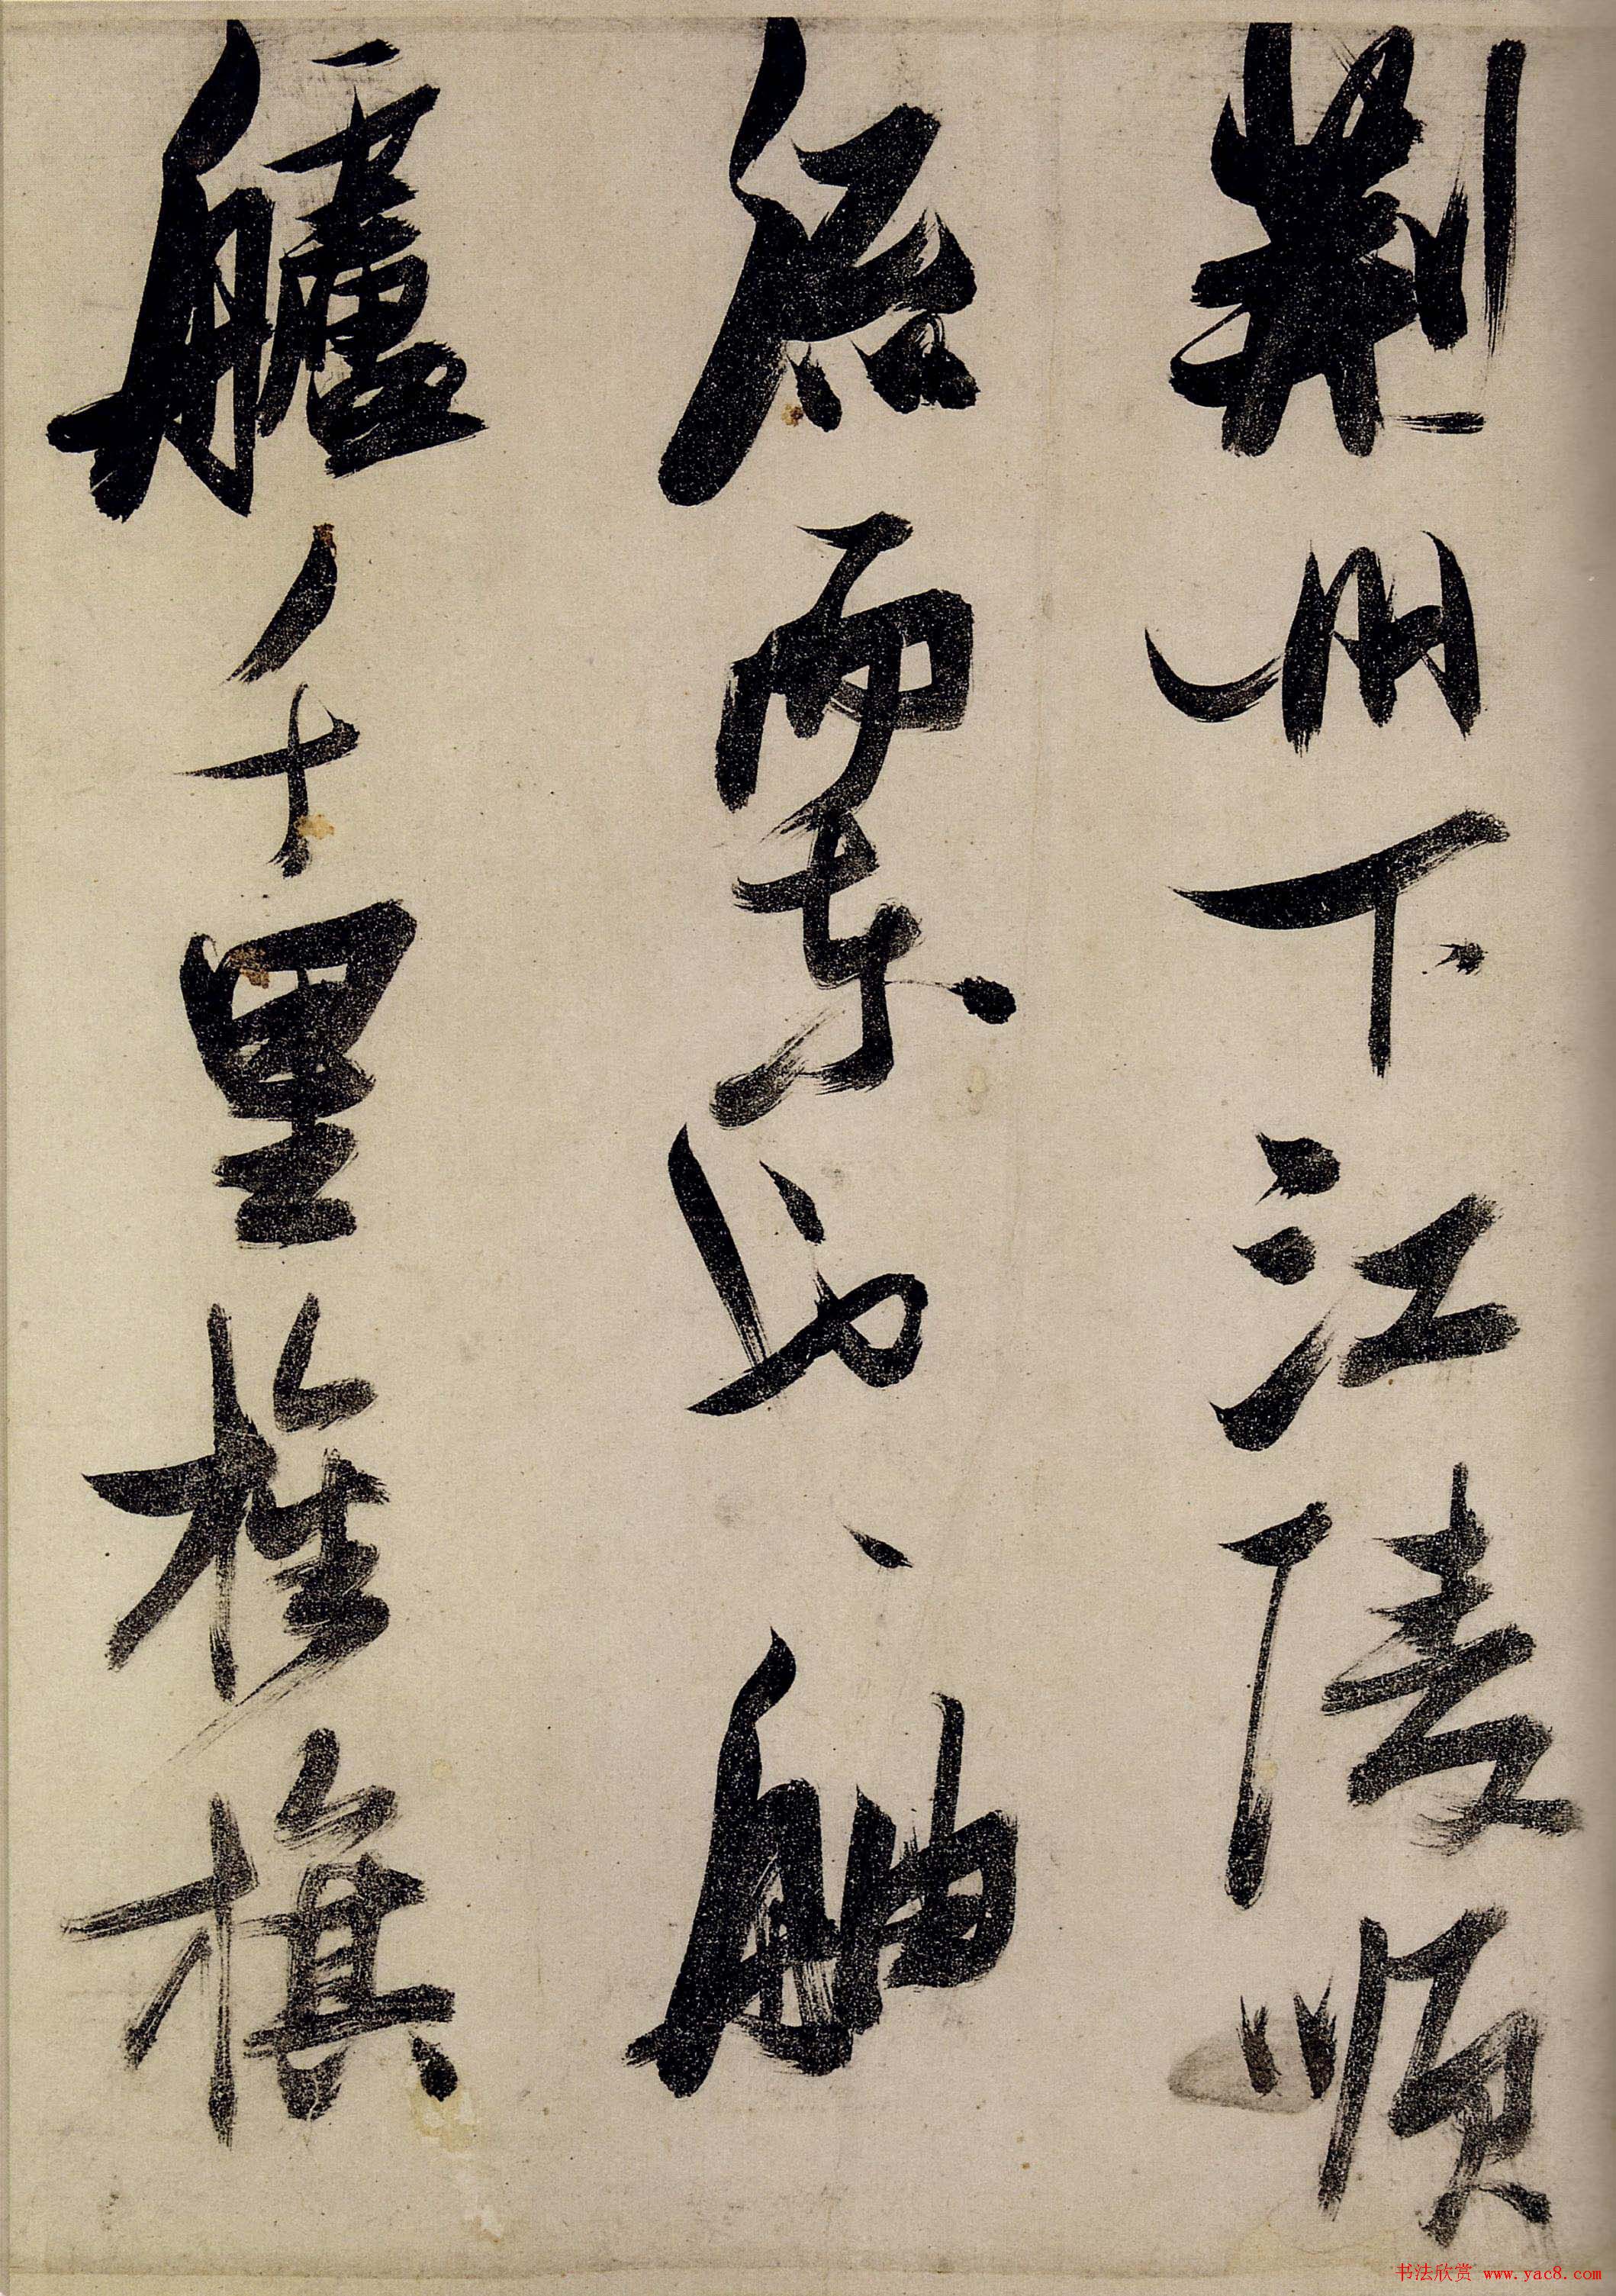 荊州下江陵順
流而東也舳
艫千里旌旗
书法欣赏 www.yac8.com